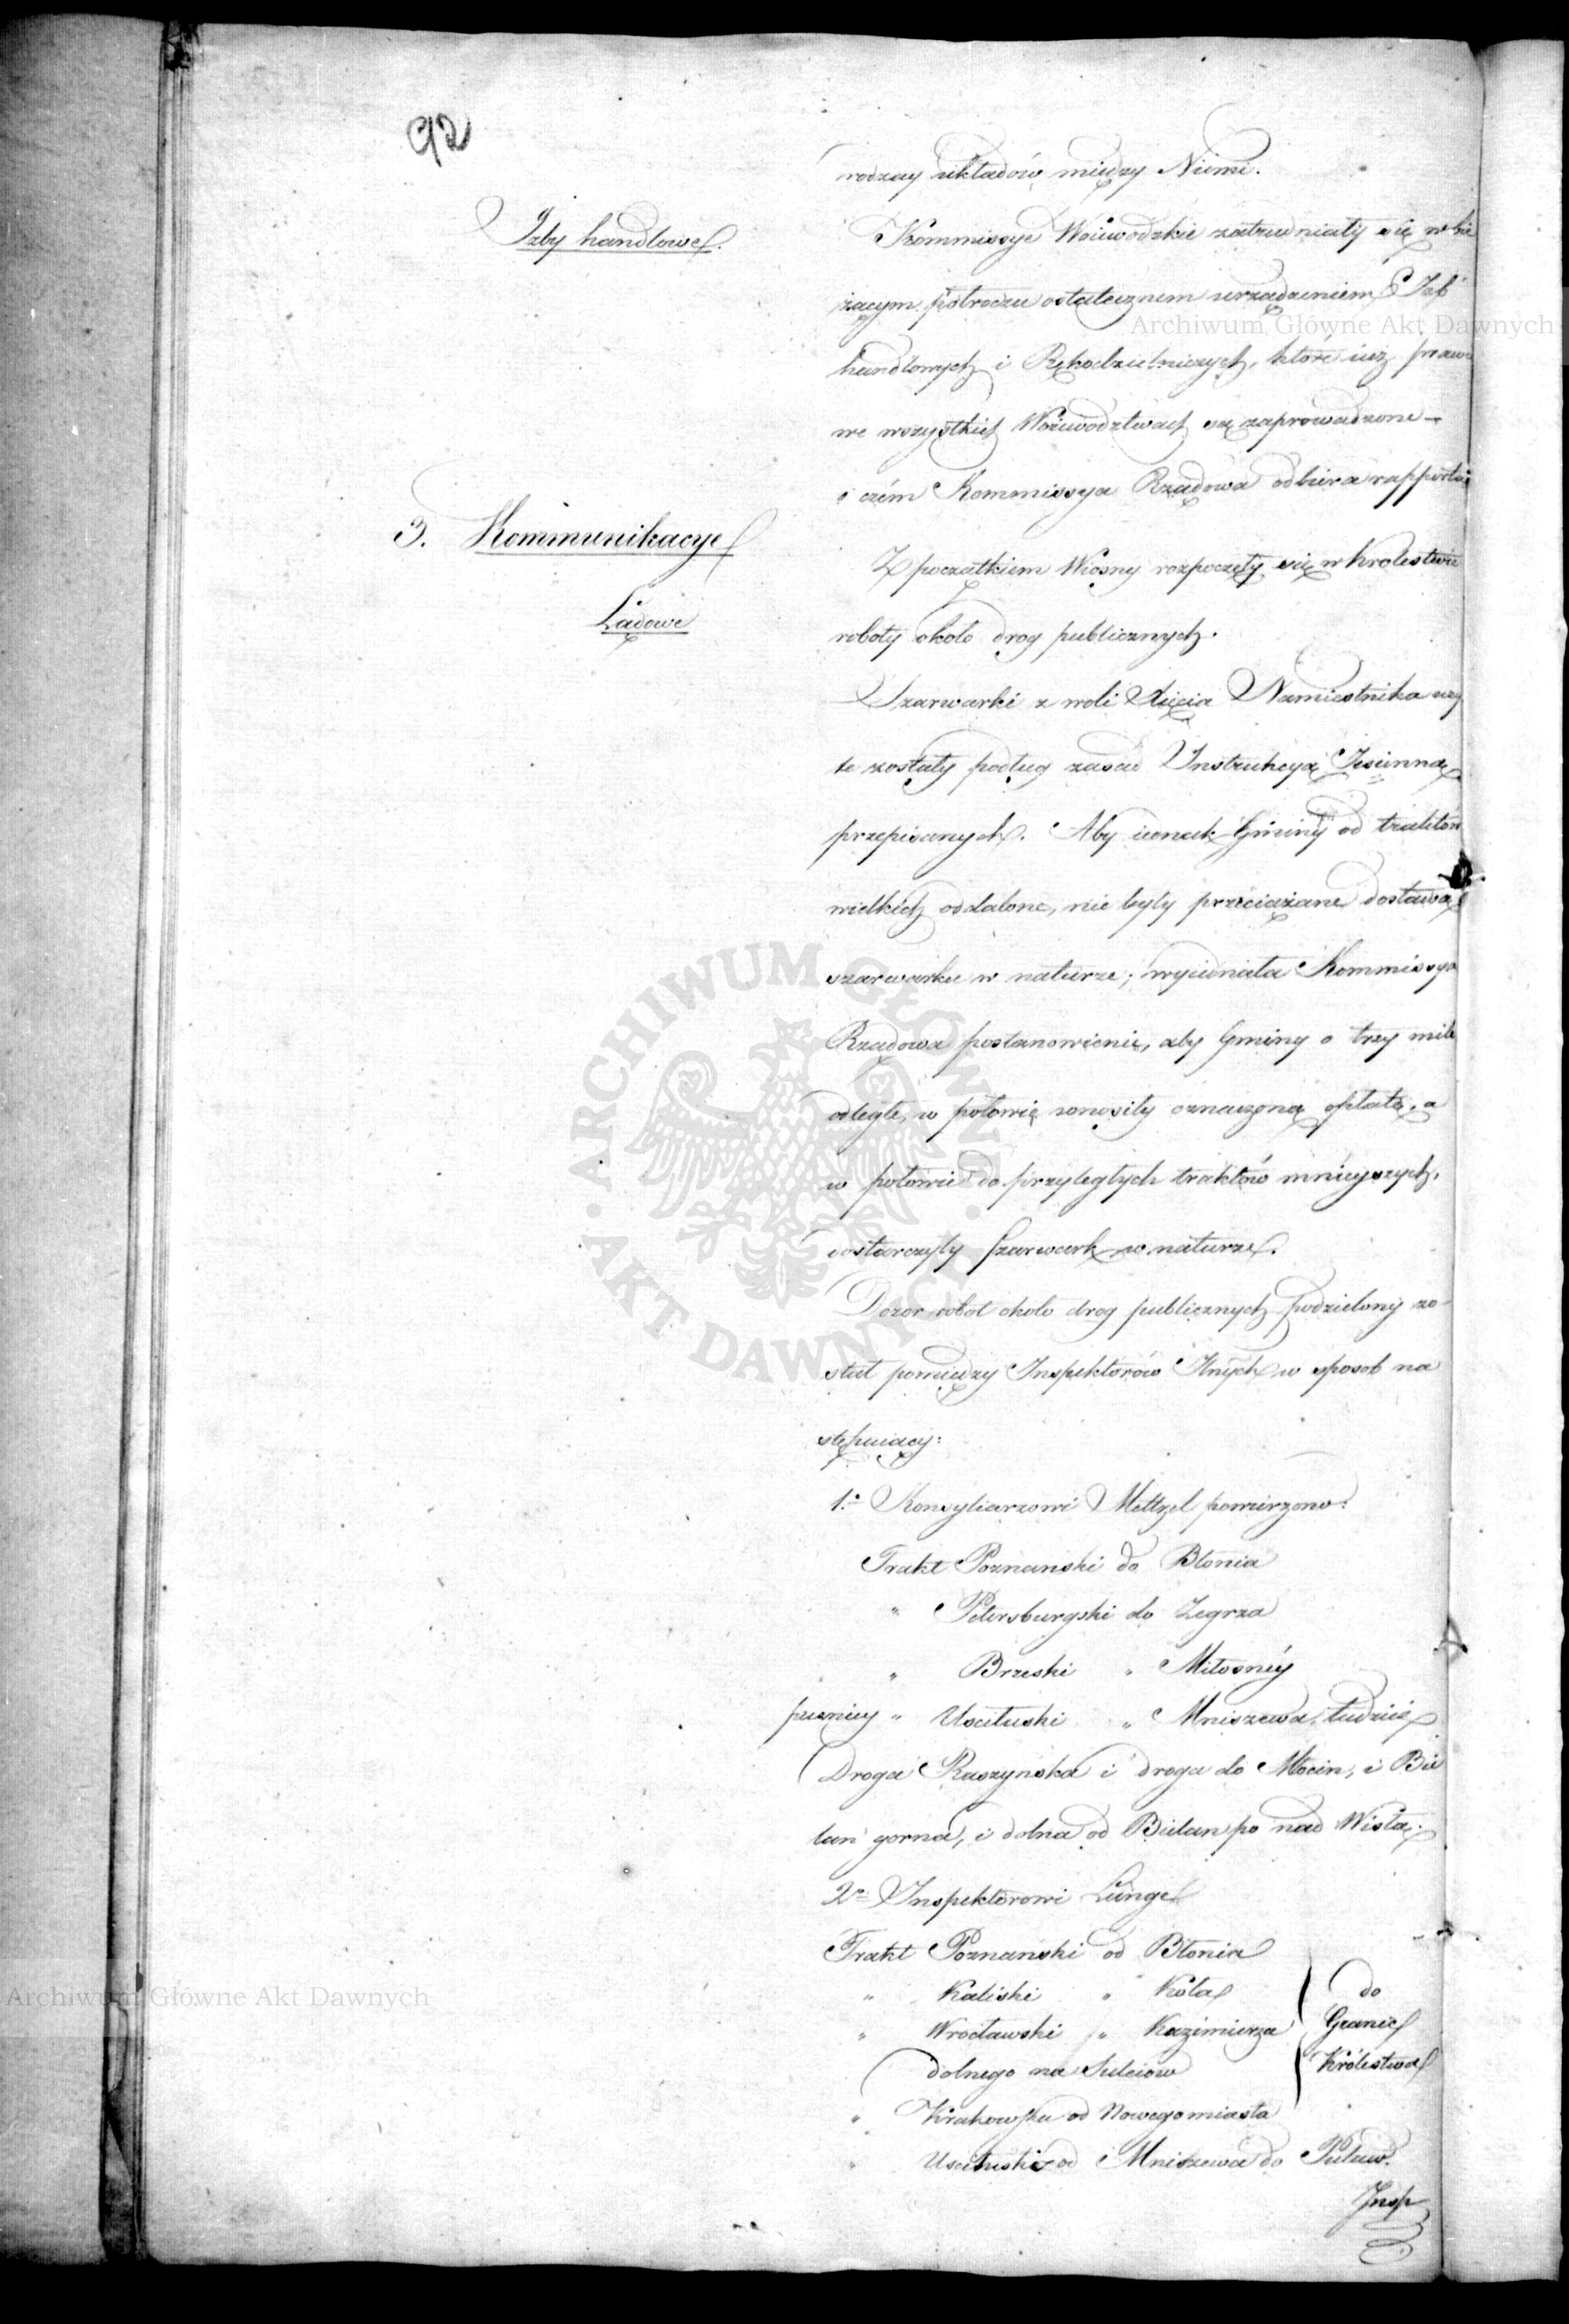 92
rodzay układów między Niemi.
Izby handlowe.
Kommissye Woiewodzkie zatrudniały się w bie
żącym półroczu ostatecznem urządzeniem Izb
handlowych i Rękodzielniczych, które iuż prawie
we wszystkich Woiewodztwach są zaprowadzone –
o czém Kommissya Rządowa odbiera rapporta
3. Kommunikacye
Lądowe
Z początkiem Wiosny rozpoczęły się w Krolestwie
roboty około drog publicznych.
Szarwarki z woli Xięcia Namiestnika uży
te zostały podług zasad Instrukcyą Jesienną
przepisanych. Aby iednak Gminy od traktów
wielkich oddalone, nie były przeciążane dostawą
szarwarku w naturze; wyiednała Kommissya
Rządowa postanowienie, aby Gminy o trzy mile
odległe, w połowie wnosiły oznaczoną opłatę, a
w połowie do przyległych traktów mnieyszych,
dostarczyły szarwark w naturze.
Dozor robot około drog publicznych podzielony zo-
stał pomiędzy Inspektorów Jlnych w sposob na
stępuiący:
1.° Konsyliarzowi Mettzel powierzono:
Trakt Poznanski do Błonia
" Petersburgski do Zegrza
" Brzeski " Miłosnéy
" Uscituski " Mniszewa, tudzież
Droga Raszyńska i droga do Mocin, i Bie
lan gorna, i dolna od Bielan po nad Wisłą.
2° Inspektorowi Lange
Trakt Poznanski od Błonia
" Kaliski " Koła
" Wrocławski " Kazimierza
dolnego na Suleiow
do
Granic
Królestwa
" Krakowski od Nowegomiasta
" Uscituski od Mniszewa do Puław.
Insp
Archiwum Główne Akt Dawnych
Archiwum Główne Akt Dawnych
ARCHIWUM GŁÓWNE AKT DAWNYCH